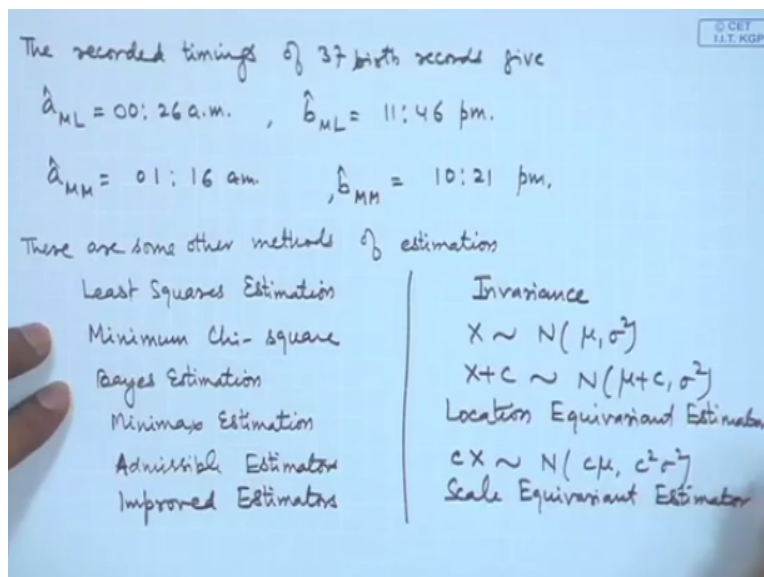 © CET
I.I.T. KGP
The recorded timings of 37 birth records give
âML = 00:26 a.m. , b̂ML = 11:46 pm.
âMM = 01:16 am. , b̂MM = 10:21 pm,
There are some other methods of estimation
Least Squares Estimation
Minimum Chi-square
Bayes Estimation
Minimax Estimation
Admissible Estimators
Improved Estimators
Invariance
X ~ N(μ, σ²)
X+c ~ N(μ+c, σ²)
Location Equivariant Estimator
cX ~ N(cμ, c²σ²)
Scale Equivariant Estimator